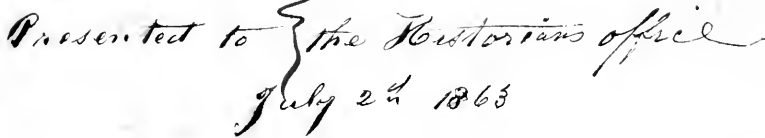 Presented to { the Historians office
July 2d 1863